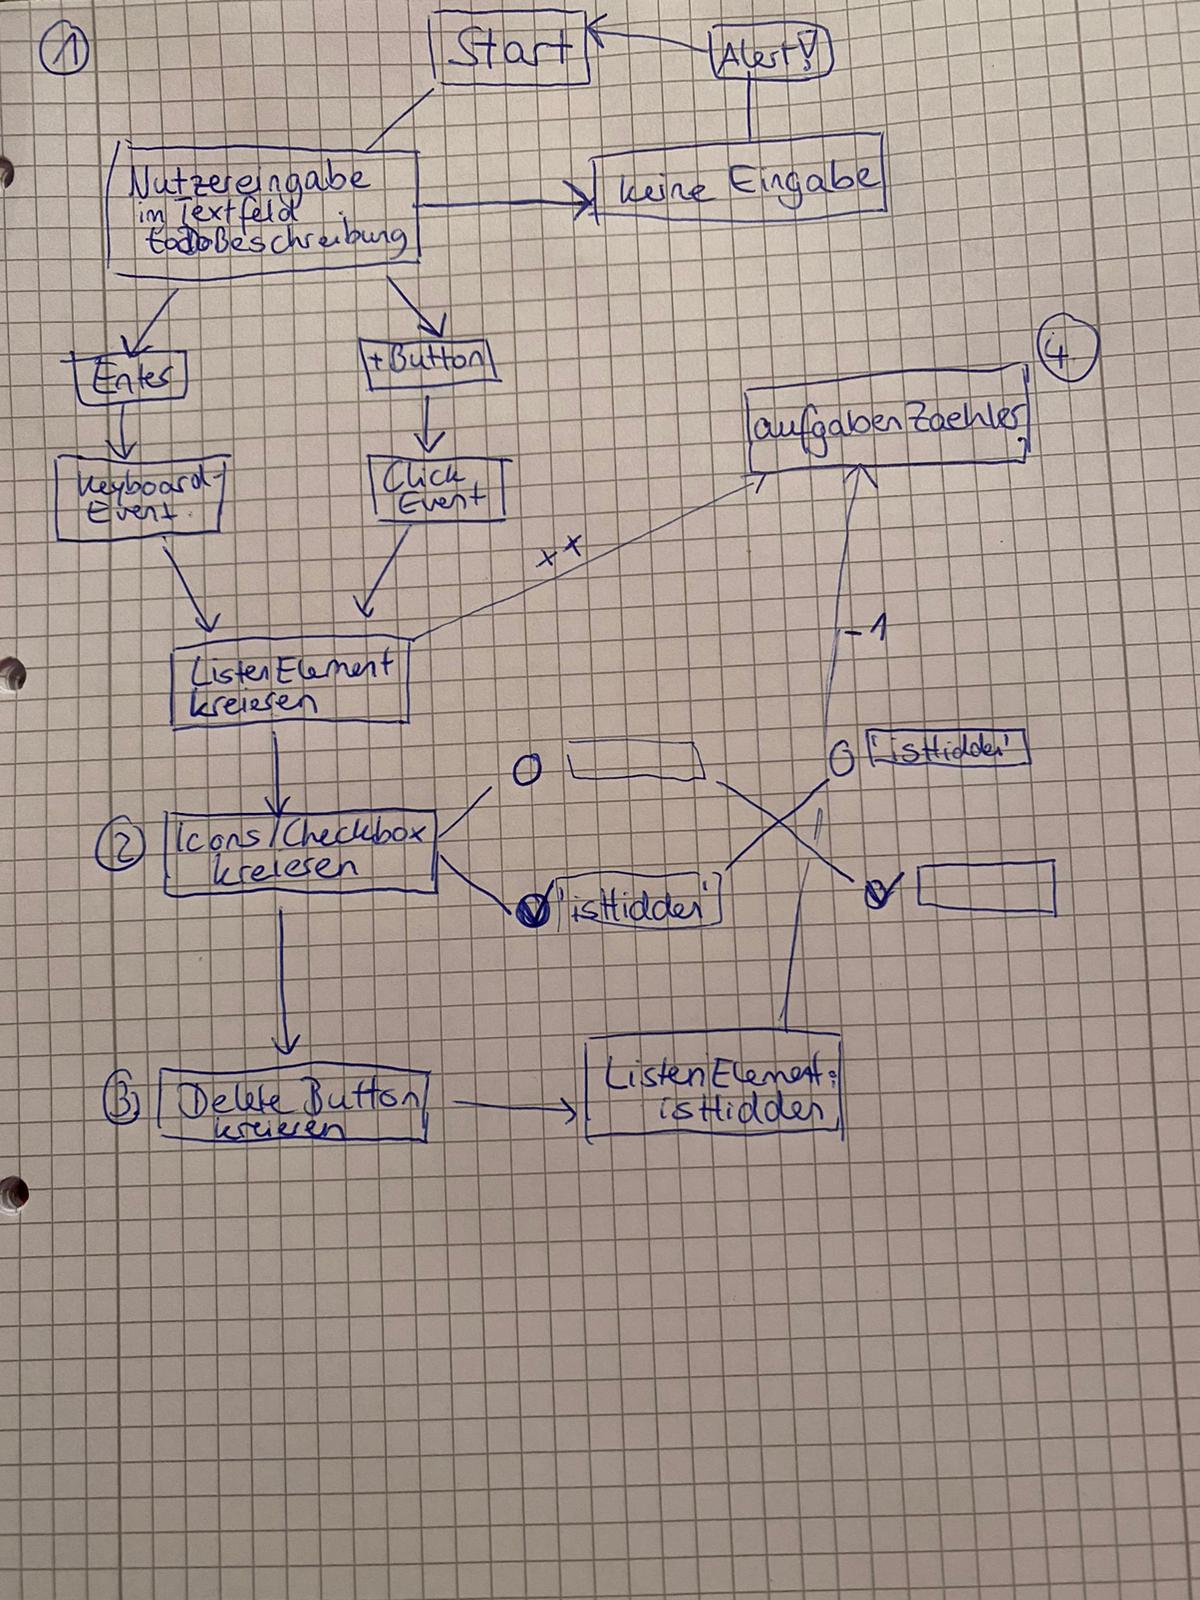 1
Start
Alert!
Nutzereingabe
im Textfeld
todoBeschreibung
keine Eingabe
Enter
+Button
4
aufgabenZaehler
Keyboard-
Event
Click
Event
++
-1
ListenElement
kreieren
'isHidden'
2
Icons/Checkbox
kreieren
'isHidden'
3
Delete Button
kreieren
ListenElement:
isHidden